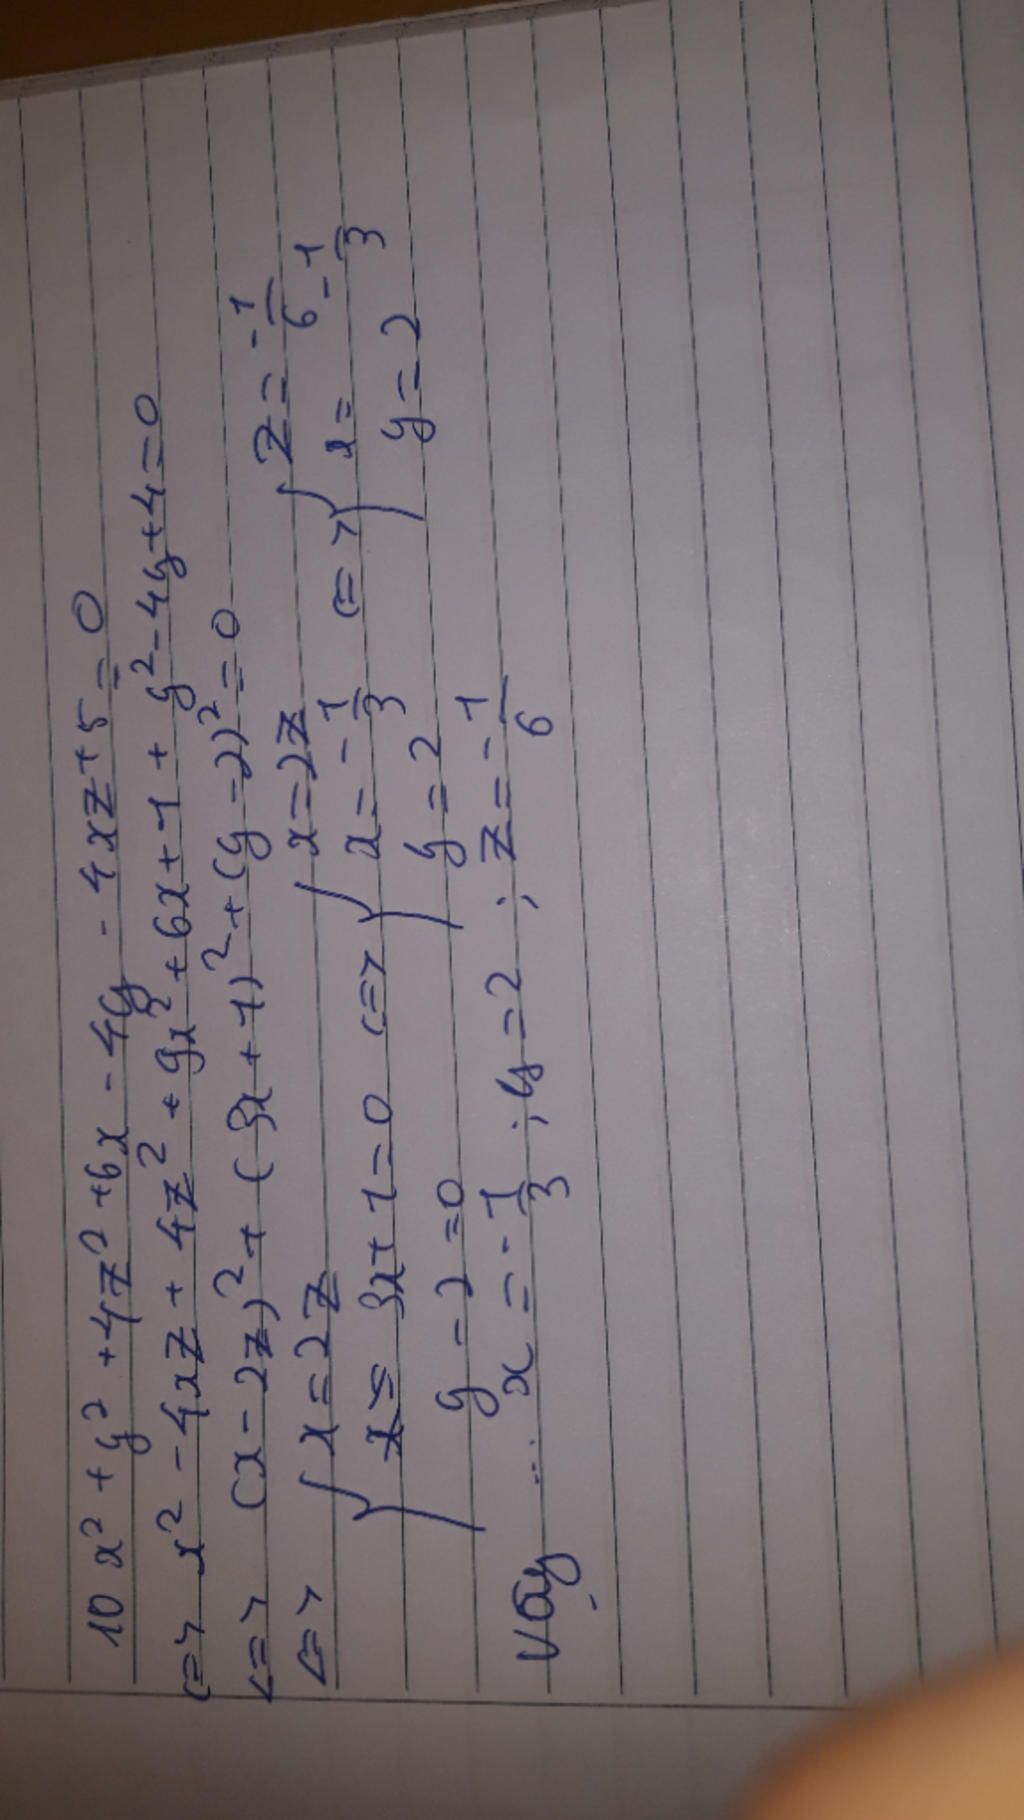 10x² + y² + 4z² + 6x - 4y - 4xz + 5 = 0
<=> x² - 4xz + 4z² + 9x² + 6x + 1 + y² - 4y + 4 = 0
<=> (x - 2z)² + (3x + 1)² + (y - 2)² = 0
<=> { x = 2z { x = 2z { z = -1/6
3x + 1 = 0 <=> x = -1/3 <=> x = -1/3
y - 2 = 0 y = 2 y = 2
Vậy ... x = -1/3 ; y = 2 ; z = -1/6